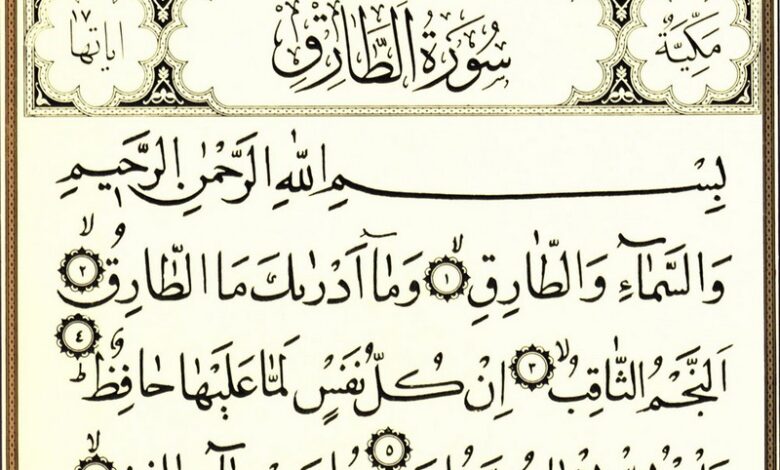 مَكِّيَّةٌ
سُورَةُ الطَّارِقِ
اٰياتها ١٧
بِسْمِ اللّٰهِ الرَّحْمٰنِ الرَّحِيمِ
وَالسَّمَٓاءِ وَالطَّارِقِ ١ وَمَٓا اَدْرٰيكَ مَا الطَّارِقُ ٢
اَلنَّجْمُ الثَّاقِبُ ٣ اِنْ كُلُّ نَفْسٍ لَمَّا عَلَيْهَا حَافِظٌ ٤
٥